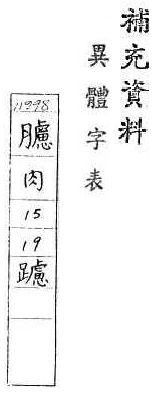 補充資料
異體字表
11998
臚
肉
15
19